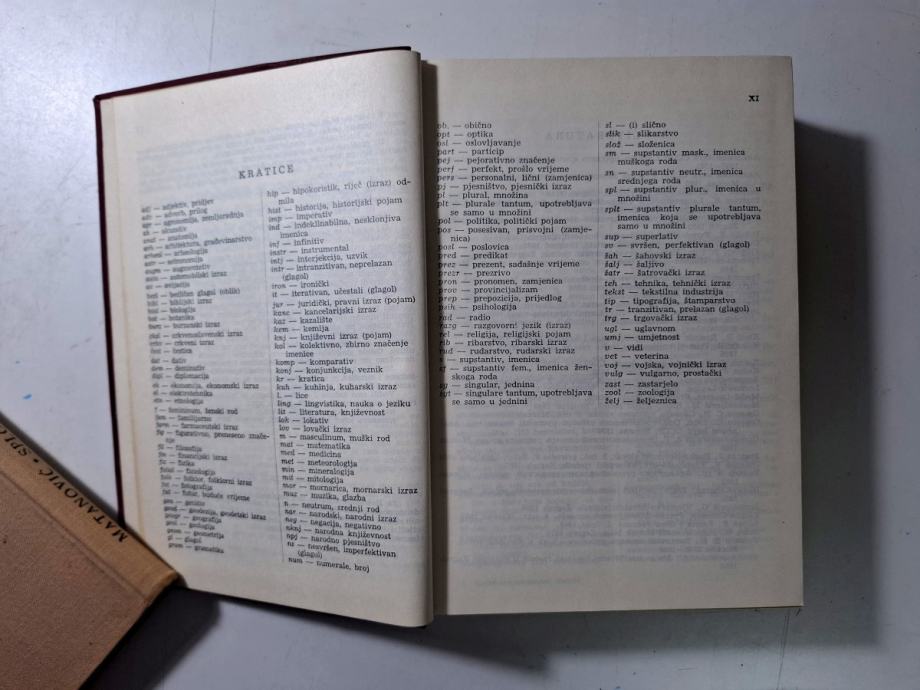 KRATICE
adj — adjektiv, pridjev
adv — adverb, prilog
agr — agronomija, zemljoradnja
ak — akuzativ
anat — anatomija
arh — arhitektura, građevinarstvo
arheol — arheologija
astr — astronomija
augm — augmentativ
bibl — biblijski izraz
biol — biologija
bot — botanika
crkv — crkveni izraz
dat — dativ
dem — deminutiv
dipl — diplomacija
ek — ekonomija, ekonomski izraz
el — elektrotehnika
etn — etnologija
f — femininum, ženski rod
fam — familijarno
farm — farmaceutski izraz
fig — figurativno, preneseno znače-
nje
fil — filozofija
fin — financijski izraz
fiz — fizika
folk — folklor, folklorni izraz
fot — fotografija
fut — futur, buduće vrijeme
gen — genitiv
geod — geodezija, geodetski izraz
geogr — geografija
geol — geologija
geom — geometrija
gl — glagol
gram — gramatika
hip — hipokoristik, riječ (izraz) od-
mila
hist — historija, historijski pojam
imp — imperativ
ind — indeklinabilna, nesklonjiva
imenica
inf — infinitiv
instr — instrumental
intj — interjekcija, uzvik
intr — intranzitivan, neprelazan
(glagol)
iron — ironički
it — iterativan, učestali (glagol)
jur — juridički, pravni izraz (pojam)
kanc — kancelarijski izraz
kaz — kazalište
kem — kemija
knj — književni izraz (pojam)
kol — kolektivno, zbirno značenje
imenice
komp — komparativ
konj — konjunkcija, veznik
kr — kratica
kuh — kuhinja, kuharski izraz
l. — lice
ling — lingvistika, nauka o jeziku
lit — literatura, književnost
lok — lokativ
lov — lovački izraz
m — masculinum, muški rod
mat — matematika
med — medicina
met — meteorologija
min — mineralogija
mit — mitologija
mor — mornarica, mornarski izraz
muz — muzika, glazba
n — neutrum, srednji rod
nar — narodski, narodni izraz
neg — negacija, negativno
nknj — narodna književnost
npj — narodno pjesništvo
ns — nesvršen, imperfektivan
(glagol)
num — numerale, broj
XI
ob. — obično
opt — optika
osl — oslovljavanje
part — particip
pej — pejorativno značenje
perf — perfekt, prošlo vrijeme
pers — personalni, lični (zamjenica)
pj — pjesništvo, pjesnički izraz
pl — plural, množina
plt — plurale tantum, upotrebljava
se samo u množini
pol — politika, politički pojam
pos — posesivan, prisvojni (zamje-
nica)
posl — poslovica
pred — predikat
prez — prezent, sadašnje vrijeme
prezr — prezrivo
pron — pronomen, zamjenica
prov — provincijalizam
prep — prepozicija, prijedlog
psih — psihologija
rad — radio
razg — razgovorni jezik (izraz)
rel — religija, religijski pojam
rib — ribarstvo, ribarski izraz
rud — rudarstvo, rudarski izraz
s — supstantiv, imenica
sf — supstantiv fem., imenica žen-
skoga roda
sg — singular, jednina
sgt — singulare tantum, upotrebljava
se samo u jednini
sl — (i) slično
slik — slikarstvo
slož — složenica
sm — supstantiv mask., imenica
muškoga roda
sn — supstantiv neutr., imenica
srednjega roda
spl — supstantiv plur., imenica u
množini
splt — supstantiv plurale tantum,
imenica koja se upotrebljava
samo u množini
sup — superlativ
sv — svršen, perfektivan (glagol)
šah — šahovski izraz
šalj — šaljivo
šatr — šatrovački izraz
teh — tehnika, tehnički izraz
tekst — tekstilna industrija
tip — tipografija, štamparstvo
tr — tranzitivan, prelazan (glagol)
trg — trgovački izraz
ugl — uglavnom
umj — umjetnost
v — vidi
vet — veterina
voj — vojska, vojnički izraz
vulg — vulgarno, prostački
zast — zastarjelo
zool — zoologija
želj — željeznica
MATANOVIĆ